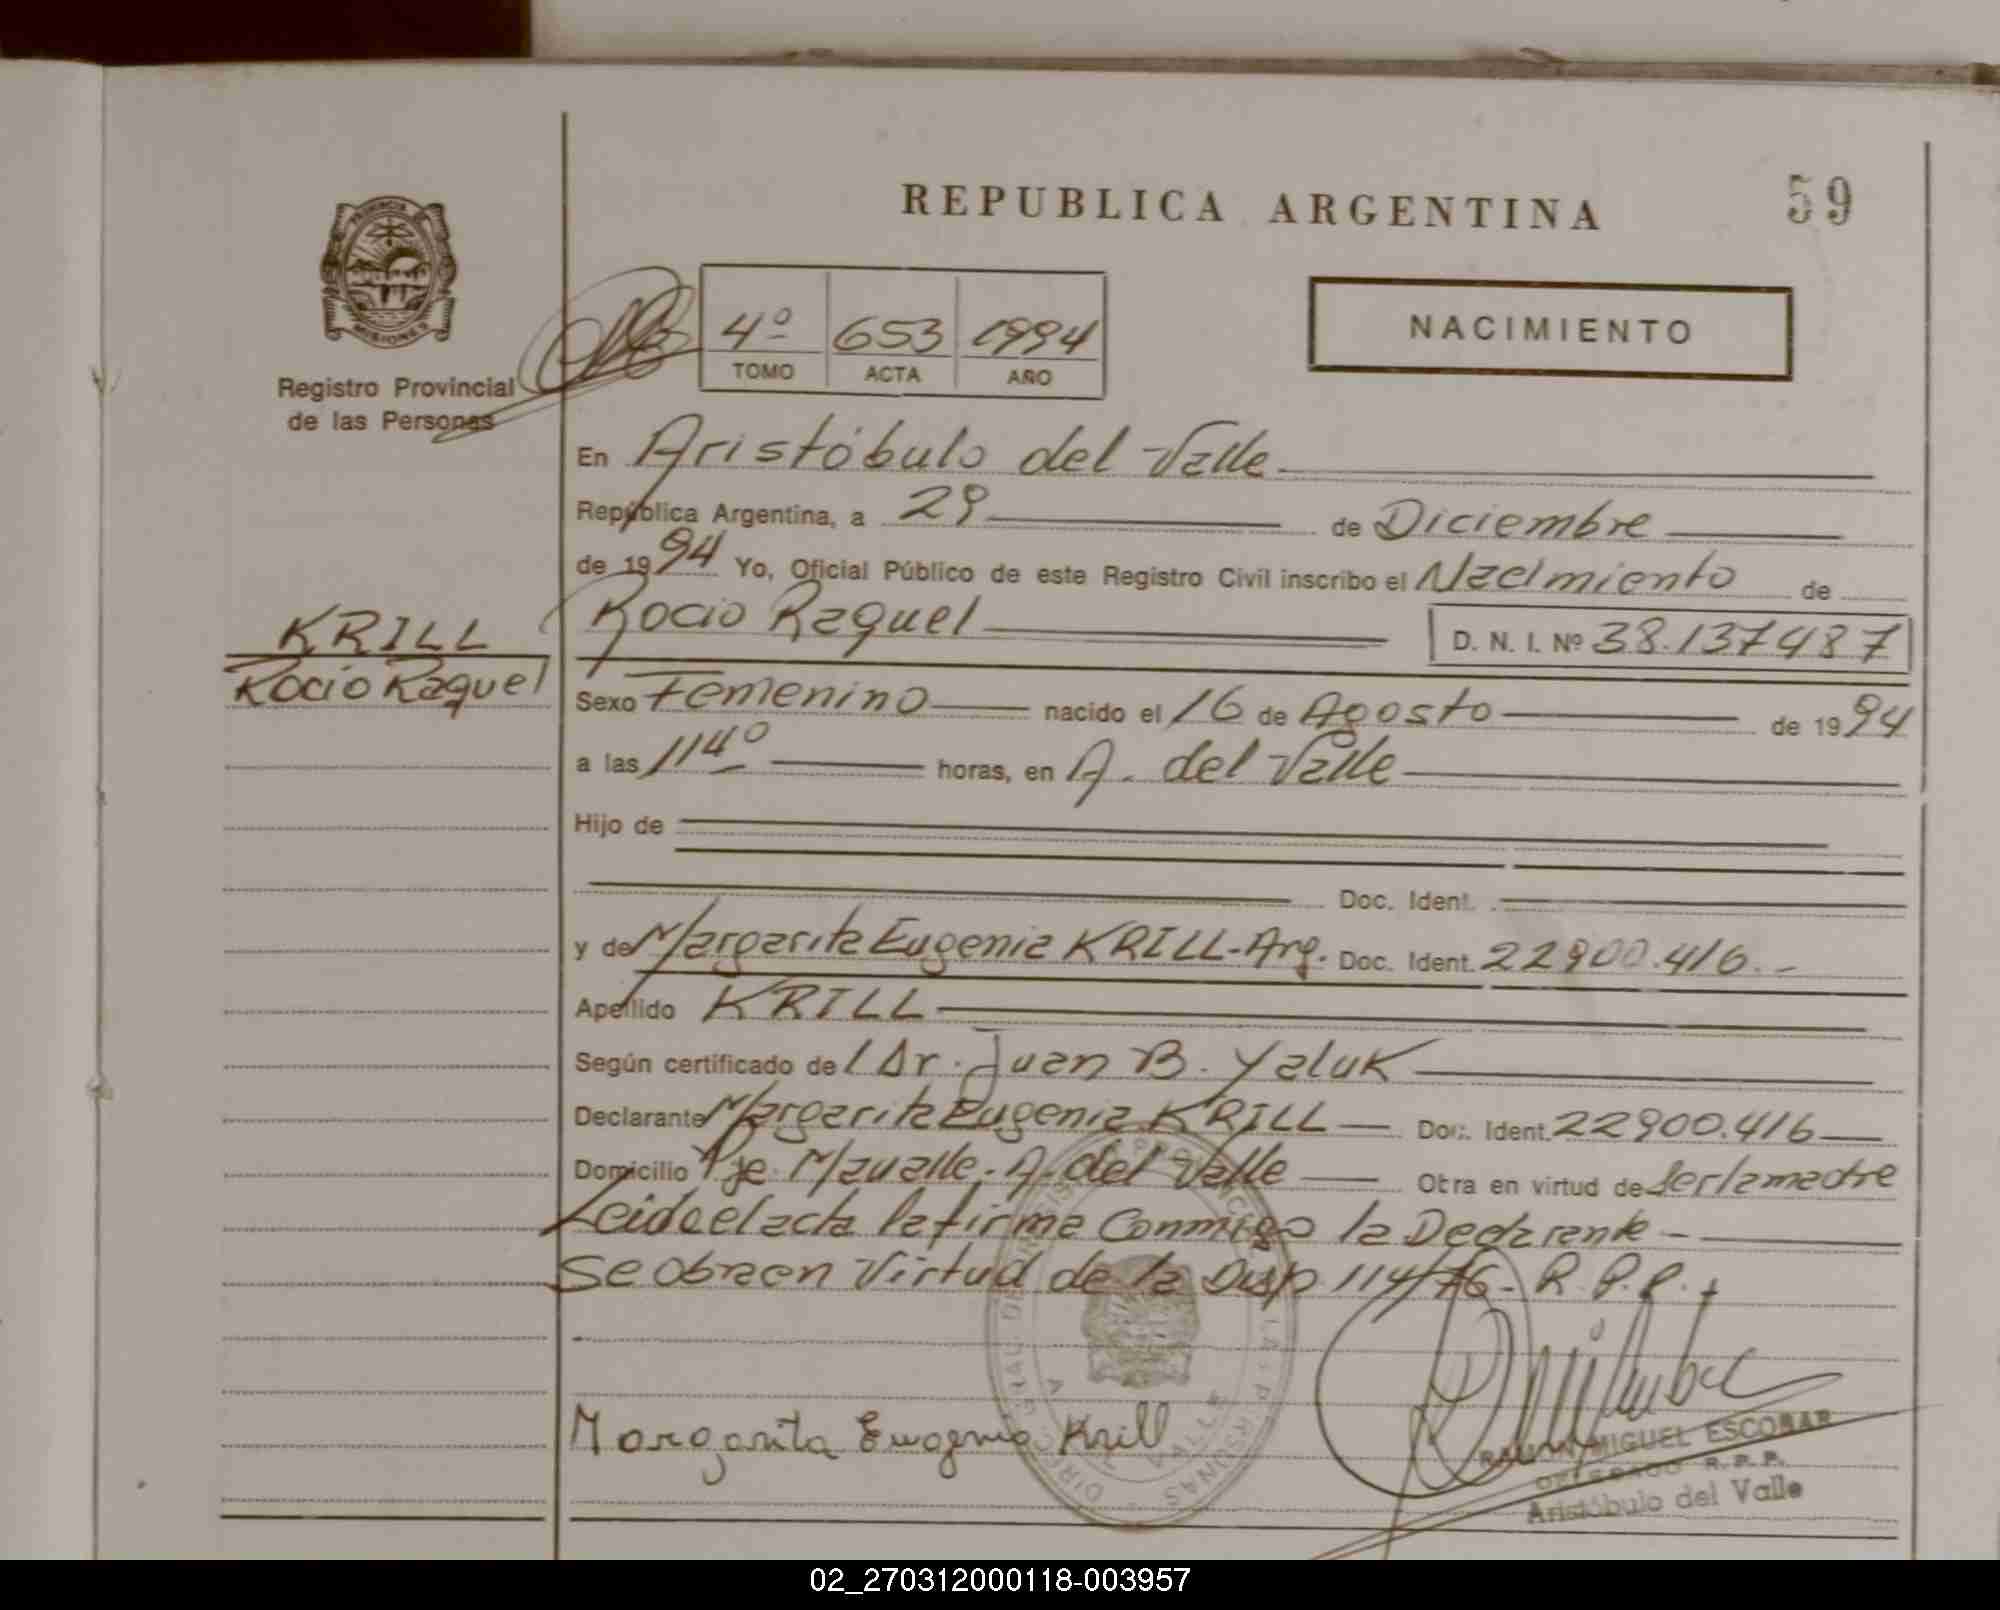 REPUBLICA ARGENTINA
59
PROVINCIA DE
MISIONES
Registro Provincial
de las Personas
4º 653 1994
TOMO ACTA AÑO
NACIMIENTO
En Aristóbulo del Valle
República Argentina, a 29 de Diciembre
de 1994 Yo, Oficial Público de este Registro Civil inscribo el Nacimiento de
KRILL
Rocio Raquel
Rocio Raquel D. N. I. Nº 38.137487
Sexo Femenino nacido el 16 de Agosto de 1994
a las 1140 horas, en A. del Valle
Hijo de
Doc. Ident.
y de Margarita Eugenia KRILL-Arg. Doc. Ident. 22900.416.-
Apellido KRILL
Según certificado de l Dr. Juan B. Yaluk
Declarante Margarita Eugenia KRILL Doc. Ident. 22900.416
Domicilio Pje. A. del Valle Otra en virtud de ser la madre
Leida el acta la firma Conmigo la Declarante -
Se obra en Virtud de la Disp 114/76- R.P.P.
Margarita Eugenia Krill
RAMON MIGUEL ESCOBAR
DELEGADO R.P.P.
Aristóbulo del Valle
02_270312000118-003957